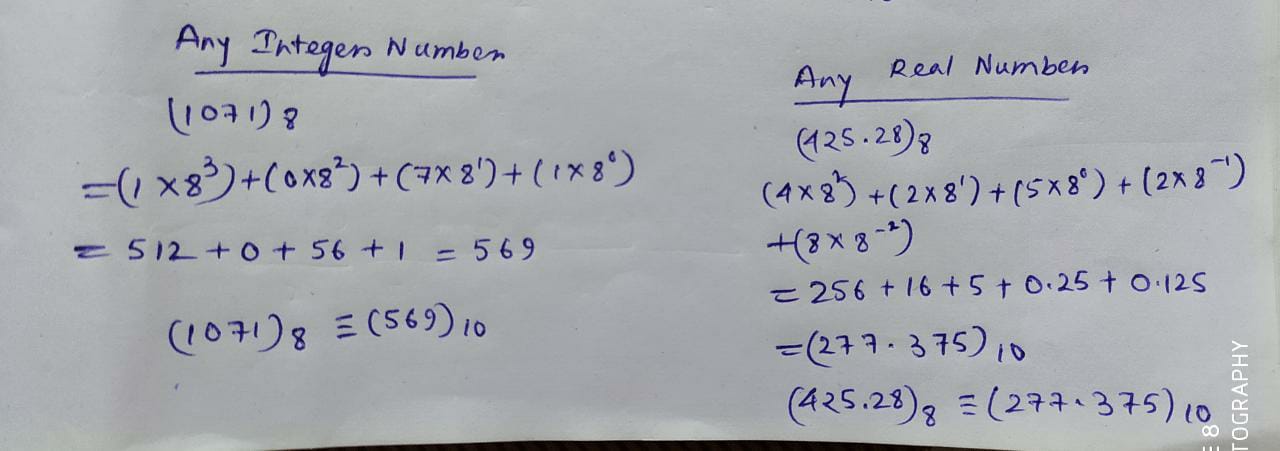 Any Integers Number
(1071)8
=(1×8³)+(0×8²)+(7×8¹)+(1×8⁰)
= 512+0+56+1 = 569
(1071)8 ≡ (569)10
Any Real Numbers
(425.28)8
(4×8²)+(2×8¹)+(5×8⁰)+(2×8⁻¹)
+(8×8⁻²)
= 256+16+5+0.25+0.125
=(277.375)10
(425.28)8 ≡ (277.375)10
E 8
TOGRAPHY